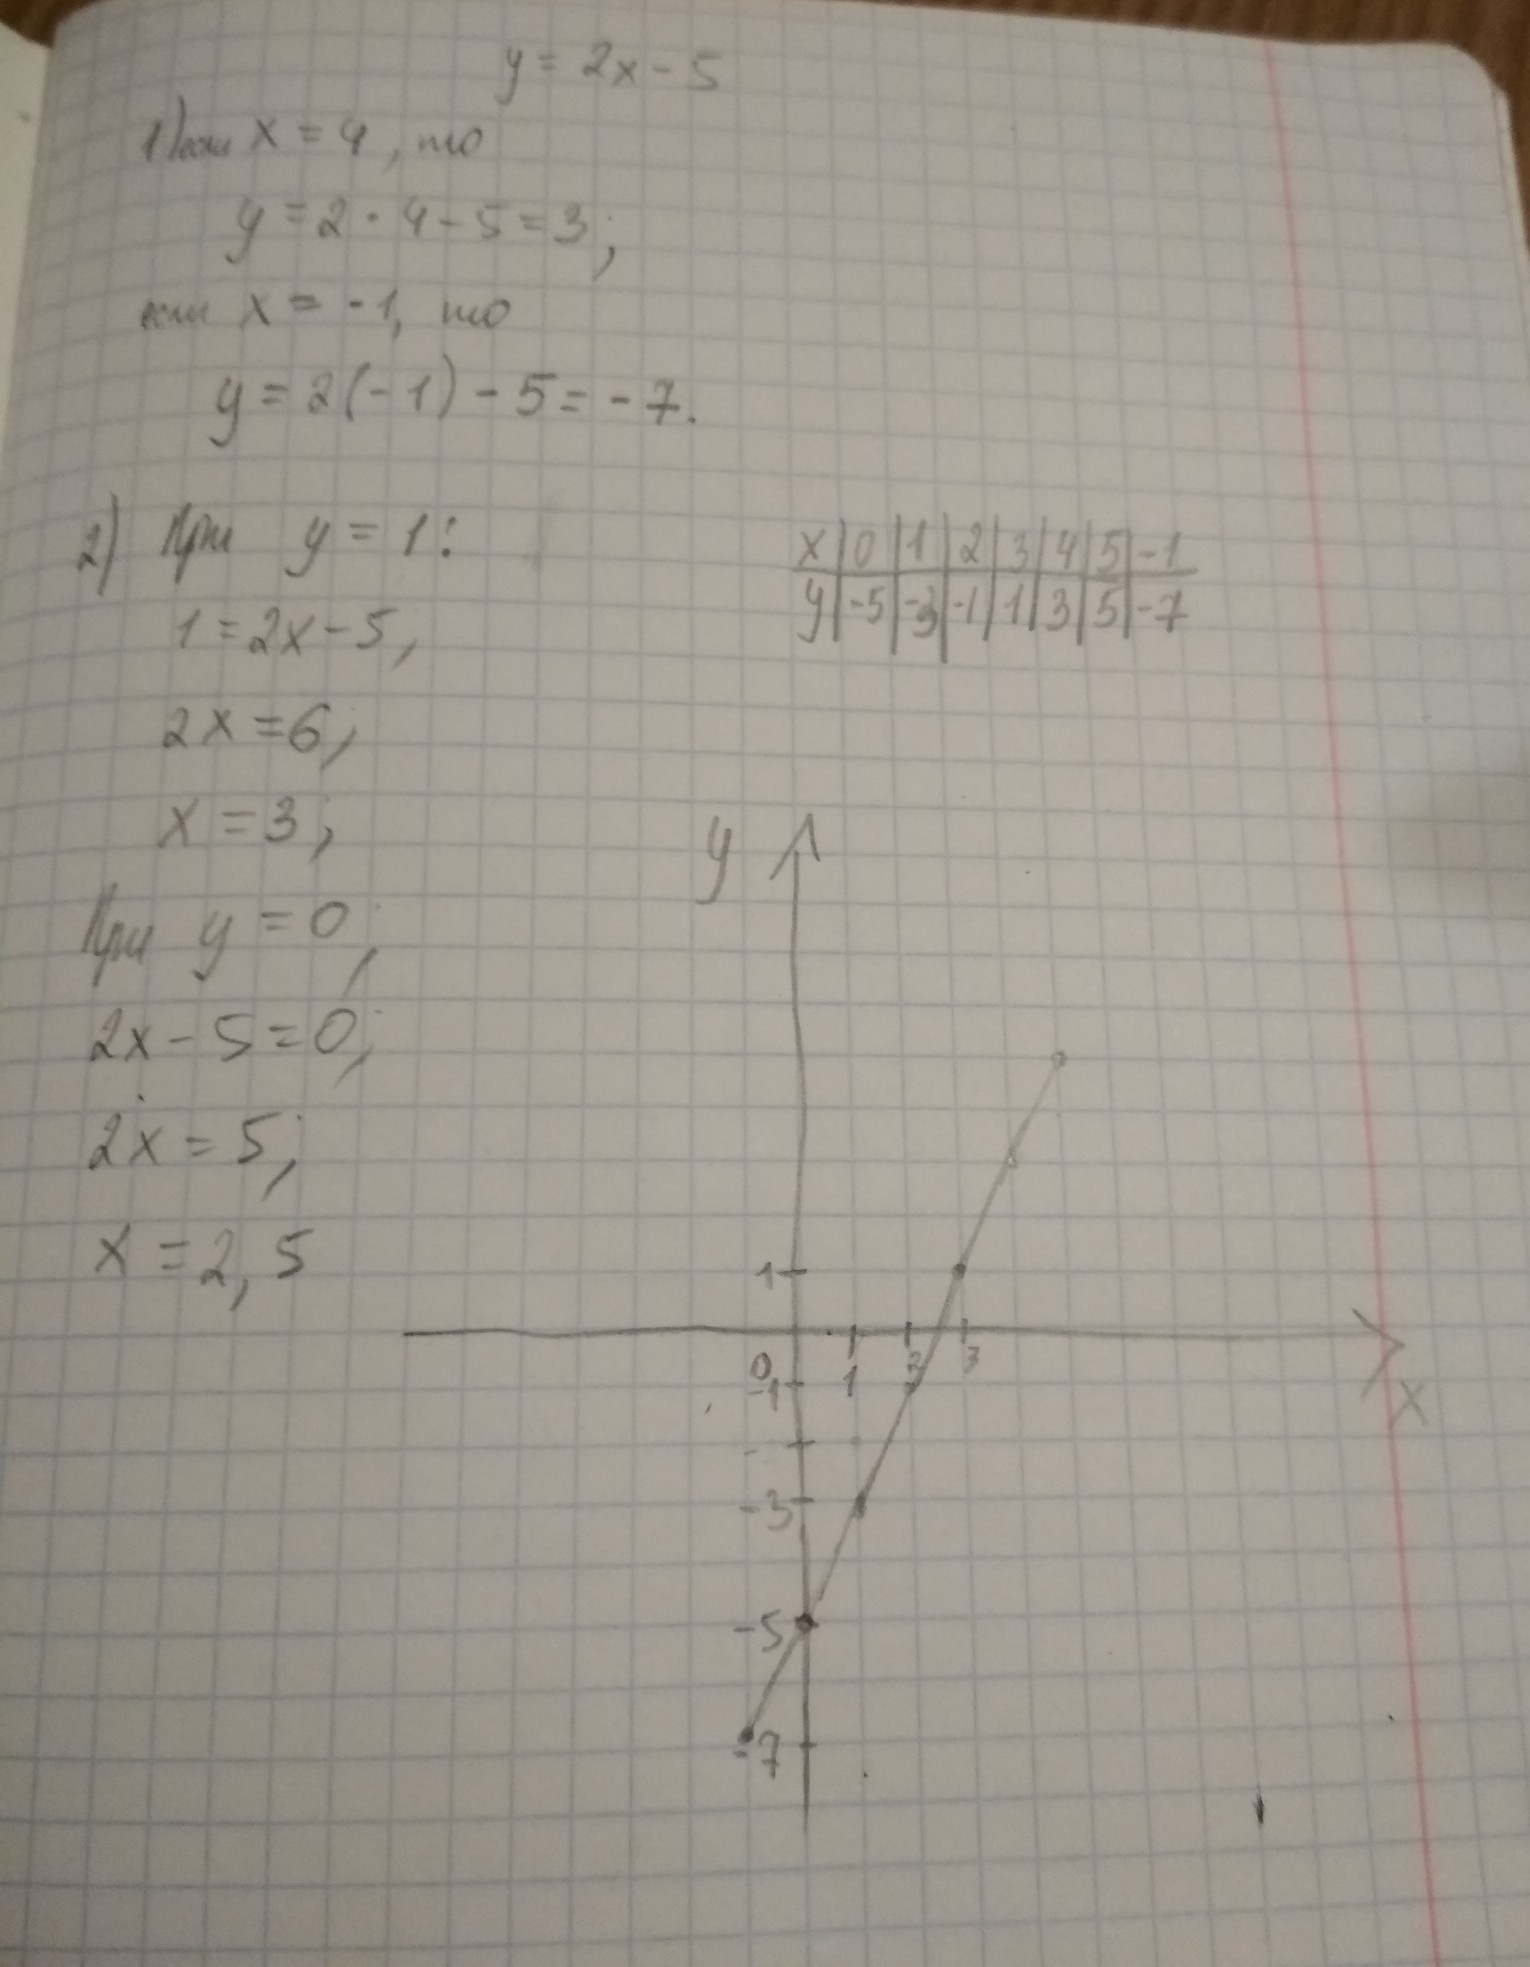 y = 2x - 5
1) если x = 4, то
y = 2 · 4 - 5 = 3;
если x = -1, то
y = 2(-1) - 5 = -7.
2) При y = 1:
1 = 2x - 5,
2x = 6;
x = 3;
При y = 0;
2x - 5 = 0;
2x = 5;
x = 2,5
x | 0 | 1 | 2 | 3 | 4 | 5 | -1
y | -5 | -3 | -1 | 1 | 3 | 5 | -7
y
1
0 1 2 3
x
-1
-
-3
-5
-7